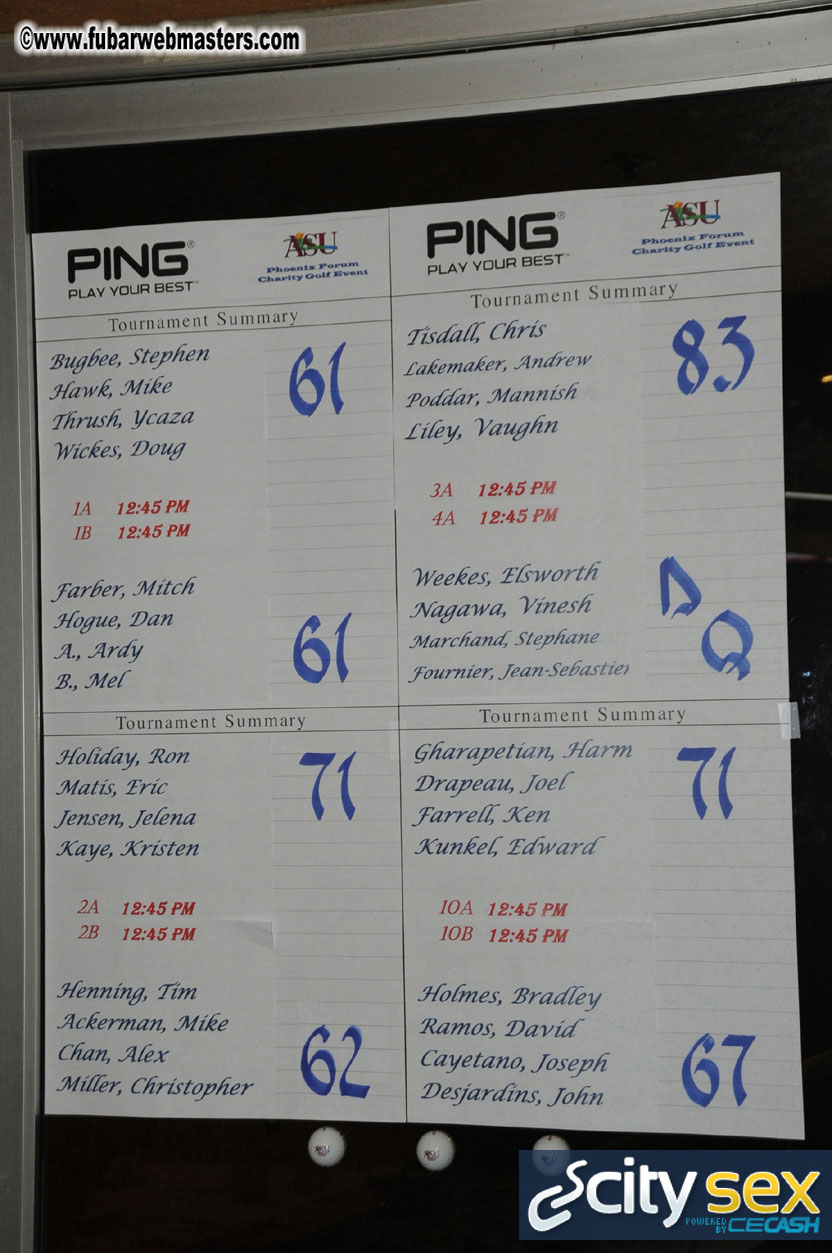 ©www.fubarwebmasters.com
PING®
PLAY YOUR BEST™
ASU
Phoenix Forum
Charity Golf Event
Tournament Summary
Bugbee, Stephen
Hawk, Mike
Thrush, Ycaza
Wickes, Doug
61
1A 12:45 PM
1B 12:45 PM
Farber, Mitch
Hogue, Dan
A., Ardy
B., Mel
61
PING®
PLAY YOUR BEST™
ASU
Phoenix Forum
Charity Golf Event
Tournament Summary
Tisdall, Chris
Lakemaker, Andrew
Poddar, Mannish
Liley, Vaughn
83
3A 12:45 PM
4A 12:45 PM
Weekes, Elsworth
Nagawa, Vinesh
Marchand, Stephane
Fournier, Jean-Sebastien
DQ
Tournament Summary
Holiday, Ron
Matis, Eric
Jensen, Jelena
Kaye, Kristen
71
2A 12:45 PM
2B 12:45 PM
Henning, Tim
Ackerman, Mike
Chan, Alex
Miller, Christopher
62
Tournament Summary
Gharapetian, Harm
Drapeau, Joel
Farrell, Ken
Kunkel, Edward
71
10A 12:45 PM
10B 12:45 PM
Holmes, Bradley
Ramos, David
Cayetano, Joseph
Desjardins, John
67
city sex
POWERED BY CECASH